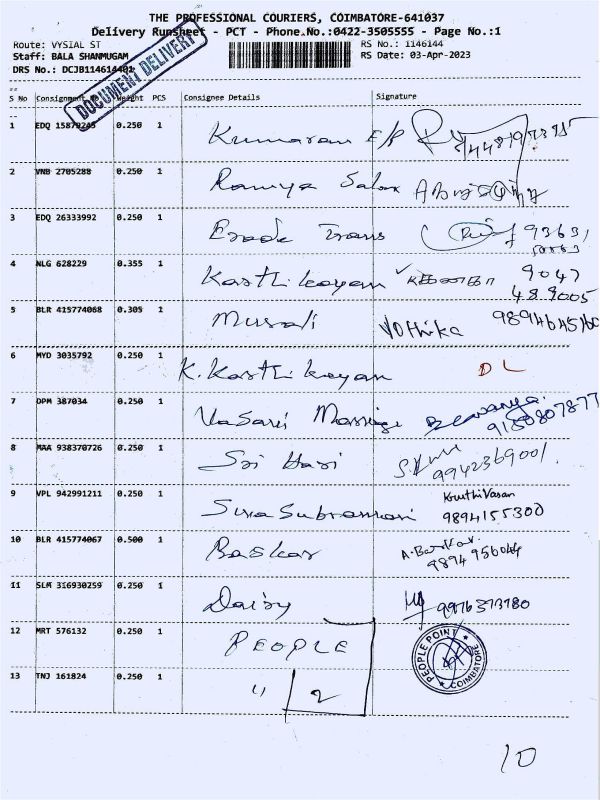 THE PROFESSIONAL COURIERS, COIMBATORE-641037
Delivery Runsheet - PCT - Phone.No.:0422-3505555 - Page No.:1
Route: VYSIAL ST
RS No.: 1146144
Staff: BALA SHANMUGAM
RS Date: 03-Apr-2023
DRS No.: DCJB114614401
DOCUMENT DELIVERY
S No Consignment Weight PCS Consignee Details Signature
1 EDQ 15879245 0.250 1 Kumaran E/P
2 VNB 2705288 0.250 1 Ramya Salon
3 EDQ 26333992 0.250 1 Erode Trans 93631
4 NLG 628229 0.355 1 Karthikeyan 9047
48 9005
5 BLR 415774068 0.305 2 Murali Vothika
6 MYD 3035792 0.250 1 K. Karthikeyan DL
7 DPM 387034 0.250 1 Vasavi Marriage
9150807877
8 MAA 938370726 0.250 1 Sri Hari
9942369001
9 VPL 942991211 0.250 1 Siva Subramani
9894155300
10 BLR 415774067 0.500 1 Baskar A. Baskar
9894 956044
11 SLM 316930259 0.250 1 Daisy
12 MRT 576132 0.250 1 PEOPLE
PEOPLE POINT COIMBATORE
13 TNJ 161824 0.250 1 " 2
10